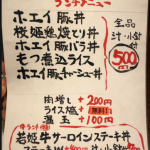 ランチメニュー
ホエイ豚丼
桜姫鶏焼とり丼
ホエイ豚バラ丼
もつ煮込ライス
ホエイ豚チャーシュー丼
全品
汁・小鉢付
500円
肉増し +200円
ライス大盛 無料
温玉 +100円
牛ランチ
若姫牛サーロインステーキ丼
汁・小鉢付